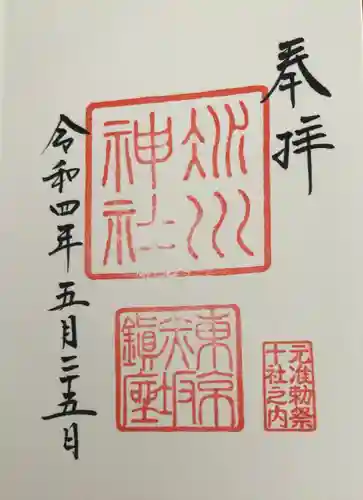 奉拝
氷川
神社
東京
赤坂
鎮座
元准勅祭
十社之内
令和四年五月二十五日